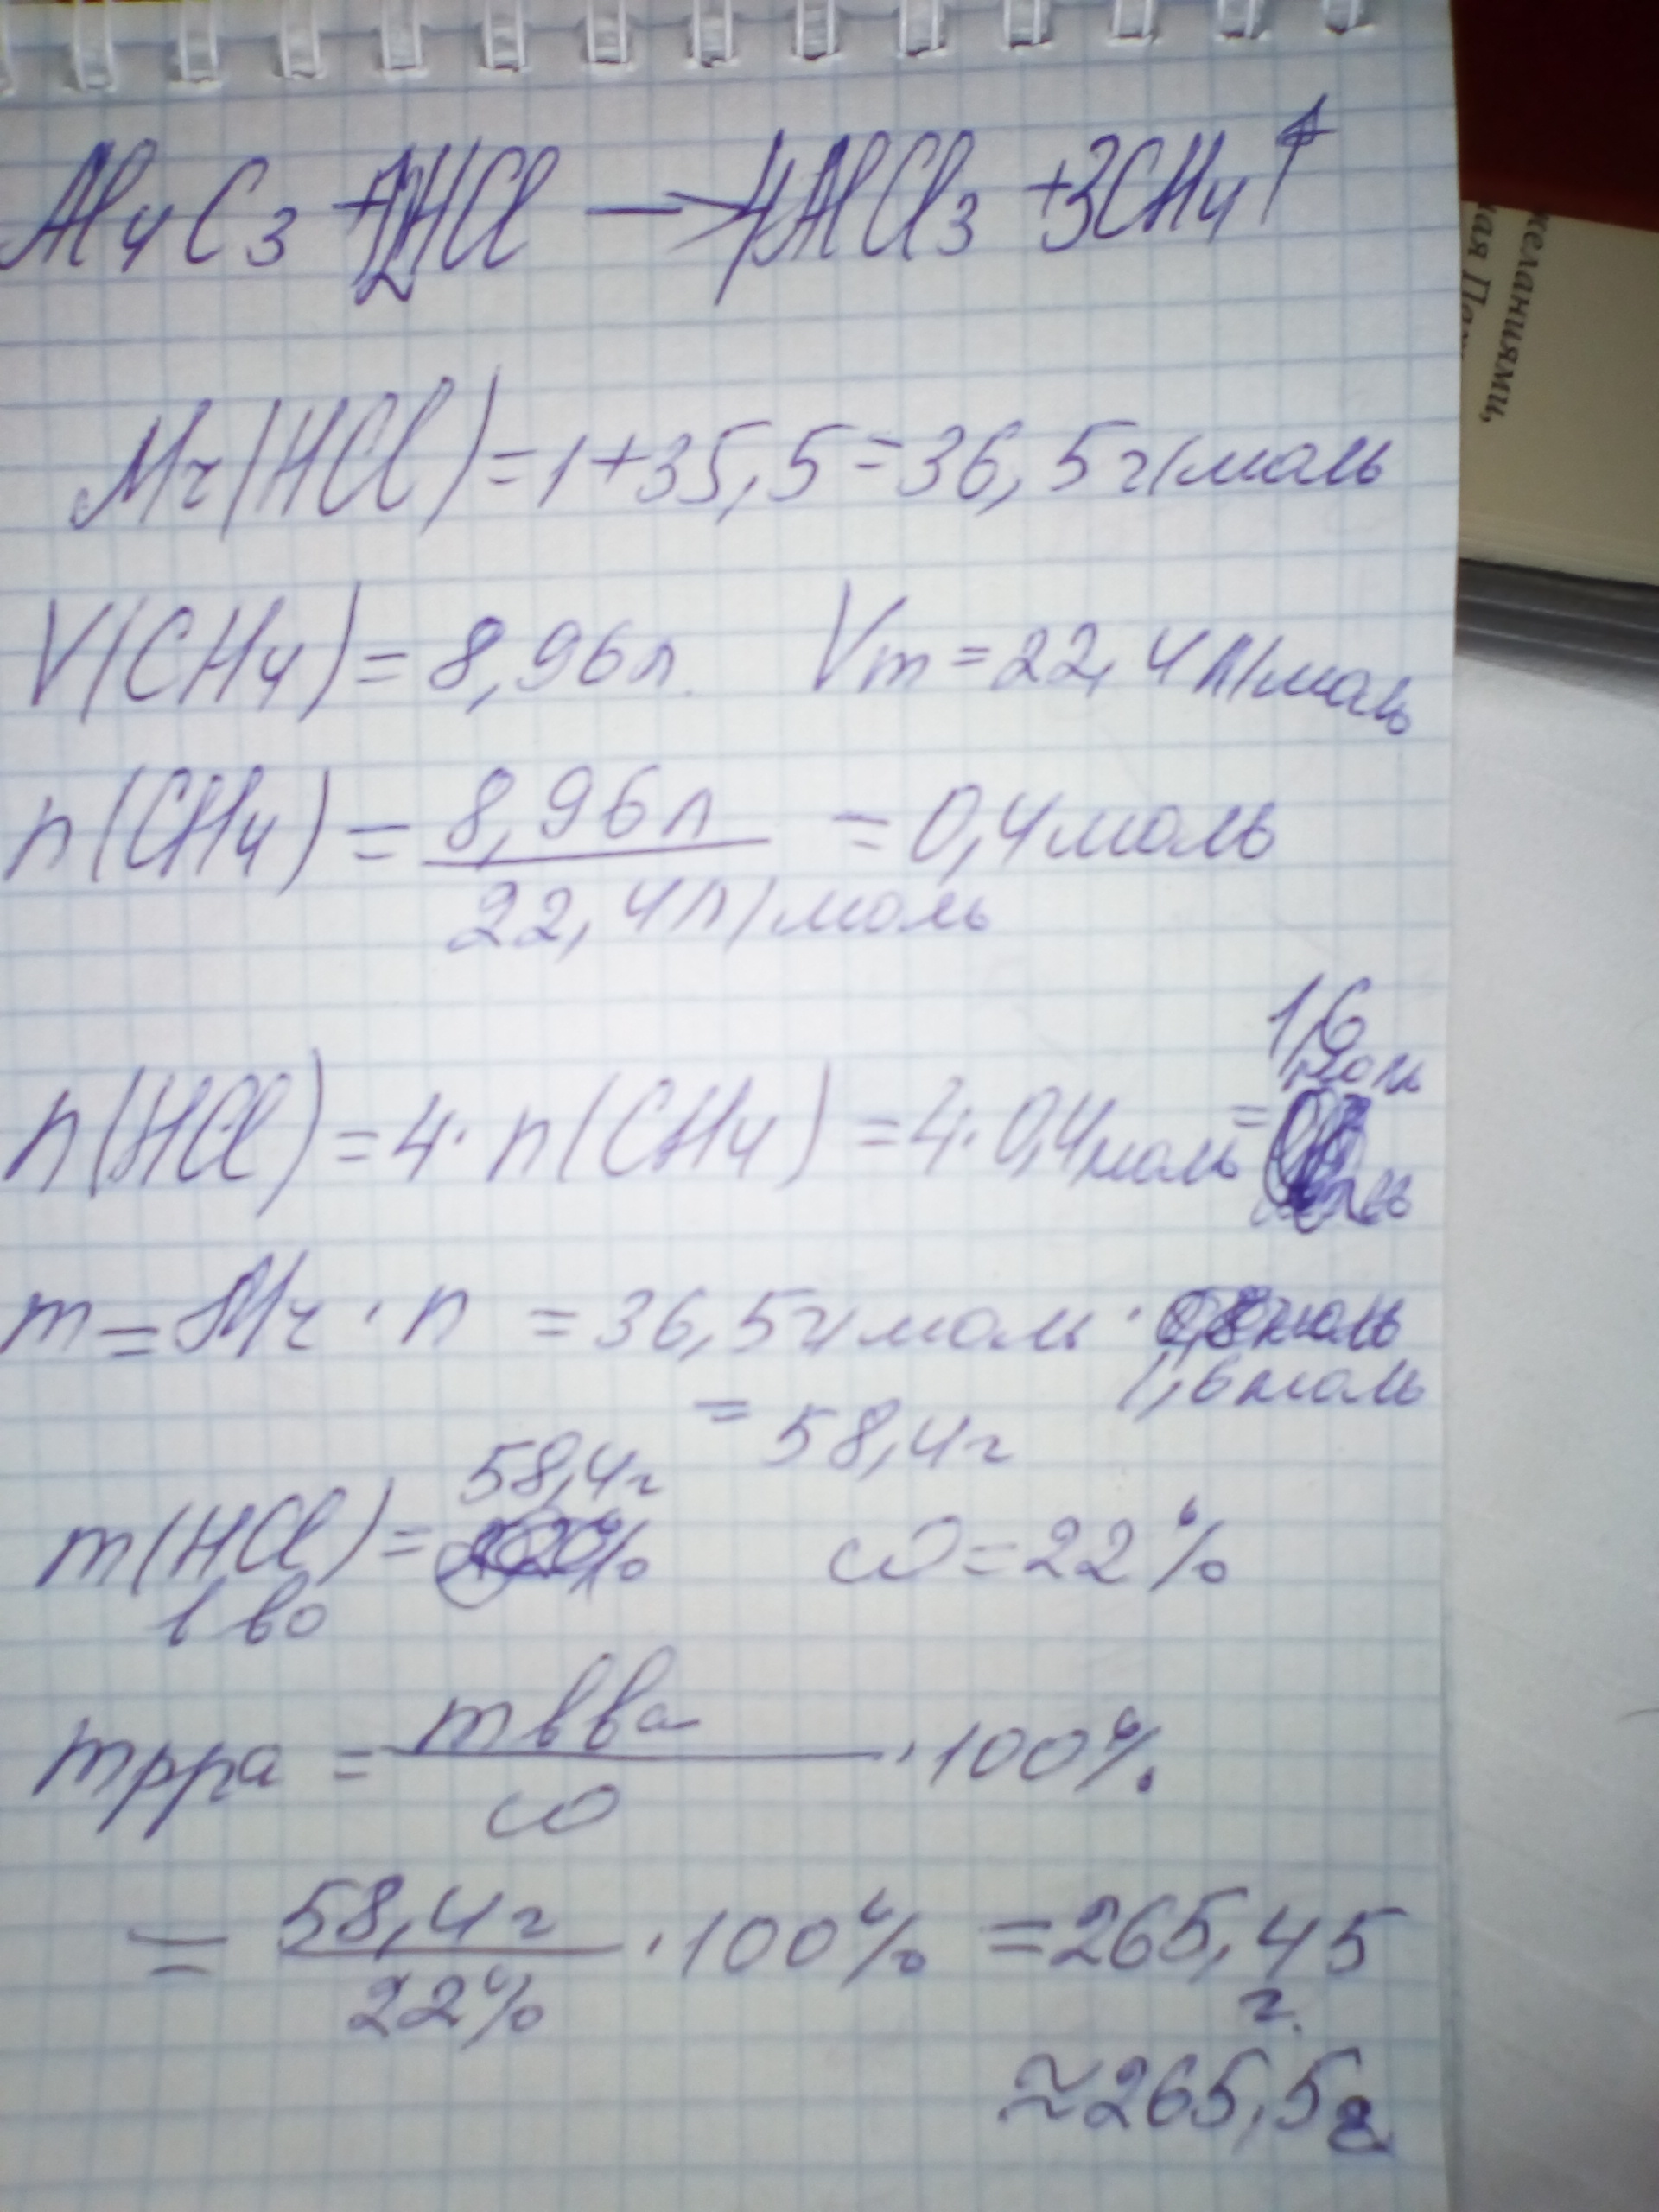 Al4C3 + 12HCl → 4AlCl3 + 3CH4↑
Mr(HCl) = 1 + 35,5 = 36,5 г/моль
V(CH4) = 8,96 л. Vm = 22,4 л/моль
n(CH4) = 8,96 л / 22,4 л/моль = 0,4 моль
n(HCl) = 4 · n(CH4) = 4 · 0,4 моль = 1,6 моль
m = Mr · n = 36,5 г/моль · 1,6 моль
= 58,4 г
m(HCl) = 58,4 г ω = 22%
в во
mрра = mвва / ω · 100%
= 58,4 г / 22% · 100% = 265,45 г.
≈ 265,5 г
желаниями,
ная